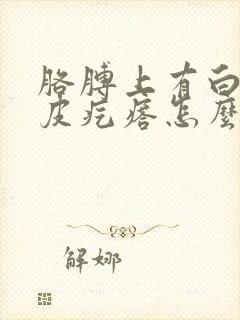 胳膊上有白
皮疙瘩怎麼
解娜